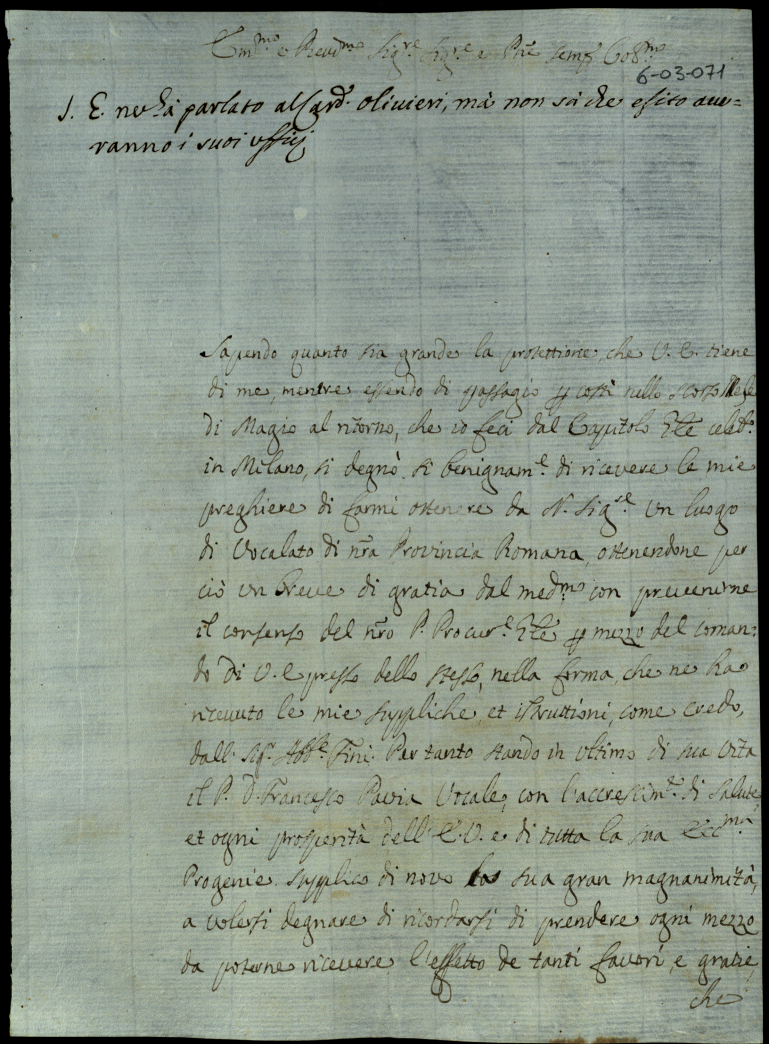 Em.mo e Reud.mo Sig.re Sig.re e Pne semp Col.mo
6-03-071
S. E. ne hà parlato al Card. Olivieri, mà non sà che esito aue=
ranno i suoi ufficj
Sapendo quanto sia grande la protettione, che V. E. tiene
di me, mentre essendo di passagio p costì nello scorso Mese
di Magio al ritorno, che io feci dal Capitolo celeb.
in Milano, si degnò si benignam.e di ricevere le mie
preghiere di farmi ottenere da N. Sig.re un luogo
di Vocalato di nra Provincia Romana, ottenendone per
ciò un breve di gratia dal med.mo con prevenirne
il consenso del nro P. Procur.e p mezzo del coman:
do di V. E presso dello stesso, nella forma, che ne ha
ricevuto le mie suppliche, et istruttioni, come credo,
dall. Sig. Abb.e Fini. Per tanto stando in ultimo di sua vita
il P. D. Francesco Pavia Vocale, con l'accrescim.to di salute,
et ogni prosperità dell'E. V. e di tutta la sua Ecc.ma
Progenie. Supplico di novo la sua gran magnanimità,
a volersi degnare di ricordarsi di prendere ogni mezzo
da poterne ricevere l'effetto de tanti favori, e gratie,
che